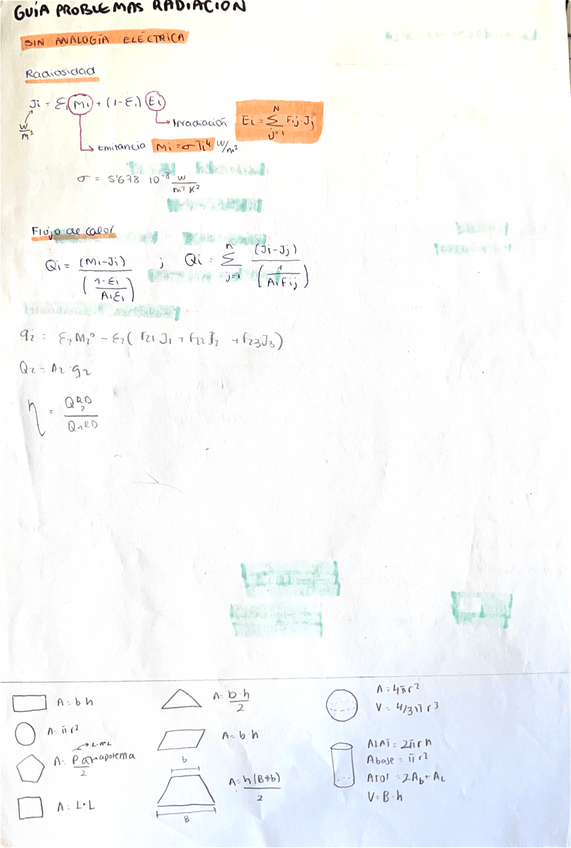 GUÍA PROBLEMAS RADIACIÓN
SIN ANALOGÍA ELÉCTRICA
Radiosidad
Ji = Ei Mi + (1-Ei) Ei
W/m²
Irradiación Ei = Σ Fij·Jj
N
j=1
Emitancia Mi = σTi⁴ W/m²
σ = 5'678 10⁻⁸ W/m²K²
Flujo de calor
Qi = (Mi-Ji) / (1-Ei / AiEi) ; Qi = Σ (Ji-Jj) / (1 / AiFij)
n
j=1
q2 = E2M2° - E2( F21J1 + F22J2 + F23J3)
Q2 = A2·q2
η =
A = b·h
A = b·h/2
A = 4πr²
V = 4/3πr³
A = πr²
A = P·apotema/2
A = b·h
b
A = h(B+b)/2
B
A = L·L
ALAT = 2πrh
Abase = πr²
Atot = 2Ab+AL
V = B·h